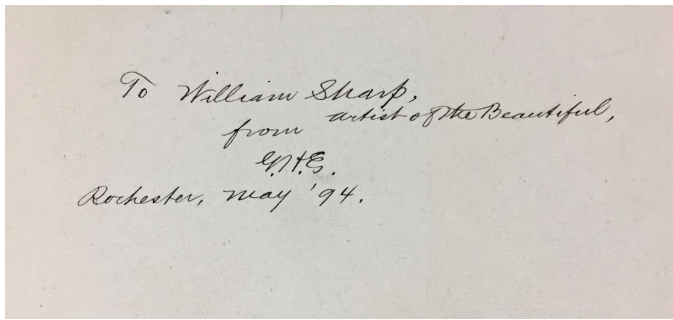 To William Sharp,
artist of the Beautiful,
from
G.H.E.
Rochester, May '94.